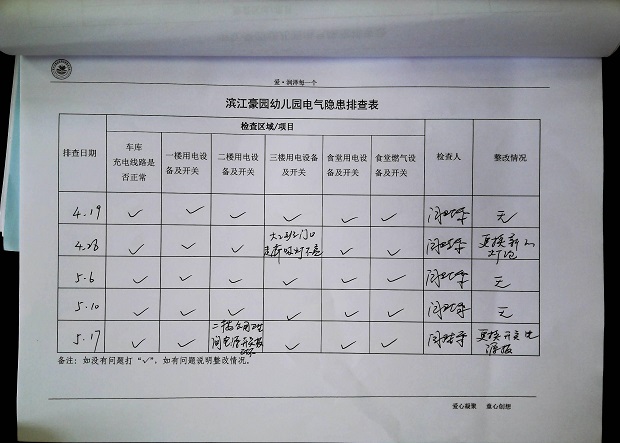 爱·润泽每一个
滨江豪园幼儿园电气隐患排查表
排查日期 检查区域/项目 检查人 整改情况
车库
充电线路是
否正常
一楼用电设
备及开关
二楼用电设
备及开关
三楼用电设备
及开关
食堂用电设
备及开关
食堂燃气设
备及开关
4.19 ✓ ✓ ✓ ✓ ✓ ✓ 无
4.28 ✓ ✓ ✓ 大二班门口
走廊灯不亮 ✓ ✓ 更换新的
灯泡
5.6 ✓ ✓ ✓ ✓ ✓ ✓ 无
5.10 ✓ ✓ ✓ ✓ ✓ ✓ 无
5.17 ✓ ✓ 二楼
间电源开关 ✓ ✓ ✓ 更换开关电
源板
备注：如没有问题打“✓”，如有问题说明整改情况。
爱心凝聚 童心创想